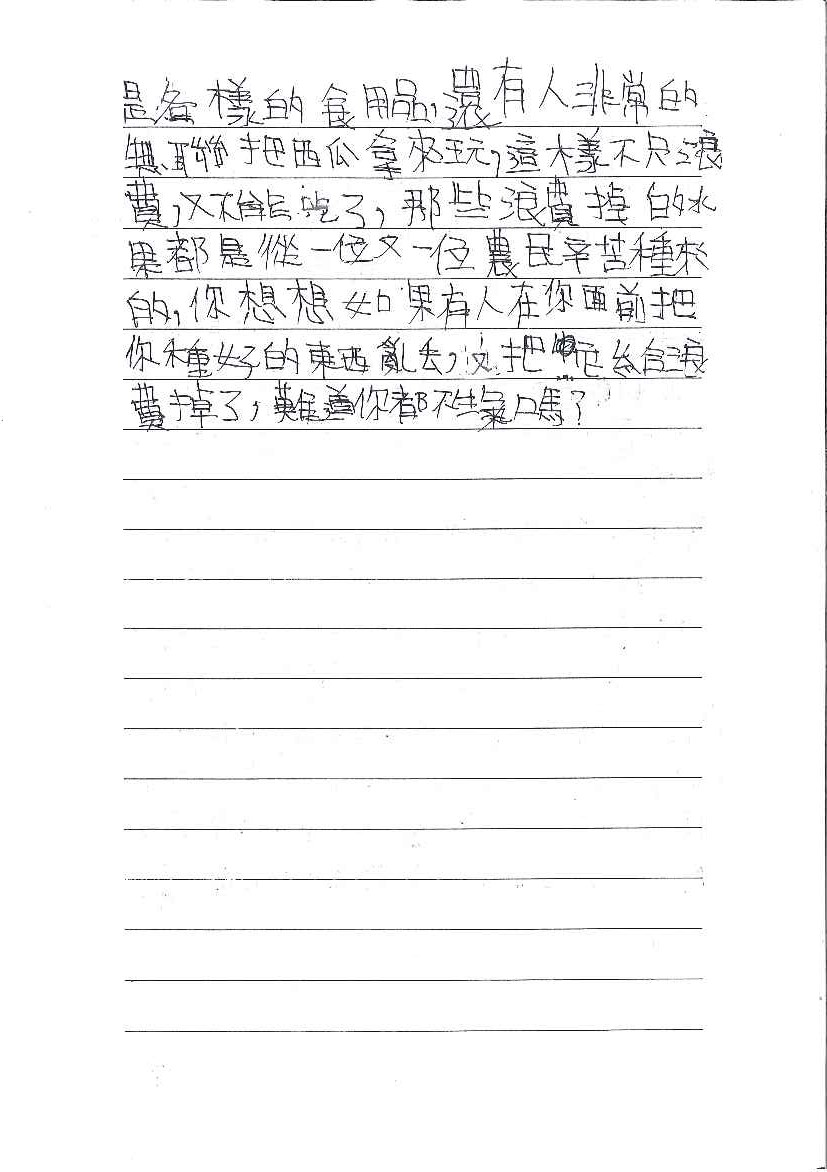 是各樣的食用品,還有人非常的
無聯把西瓜拿來玩,這樣不只浪
費,又不能吃了,那些浪費掉的水
果都是從一位又一位農民辛苦種來
的,你想想如果有人在你面前把
你種好的東西亂丟,又把它給浪
費掉了,難道你都不生氣嗎?